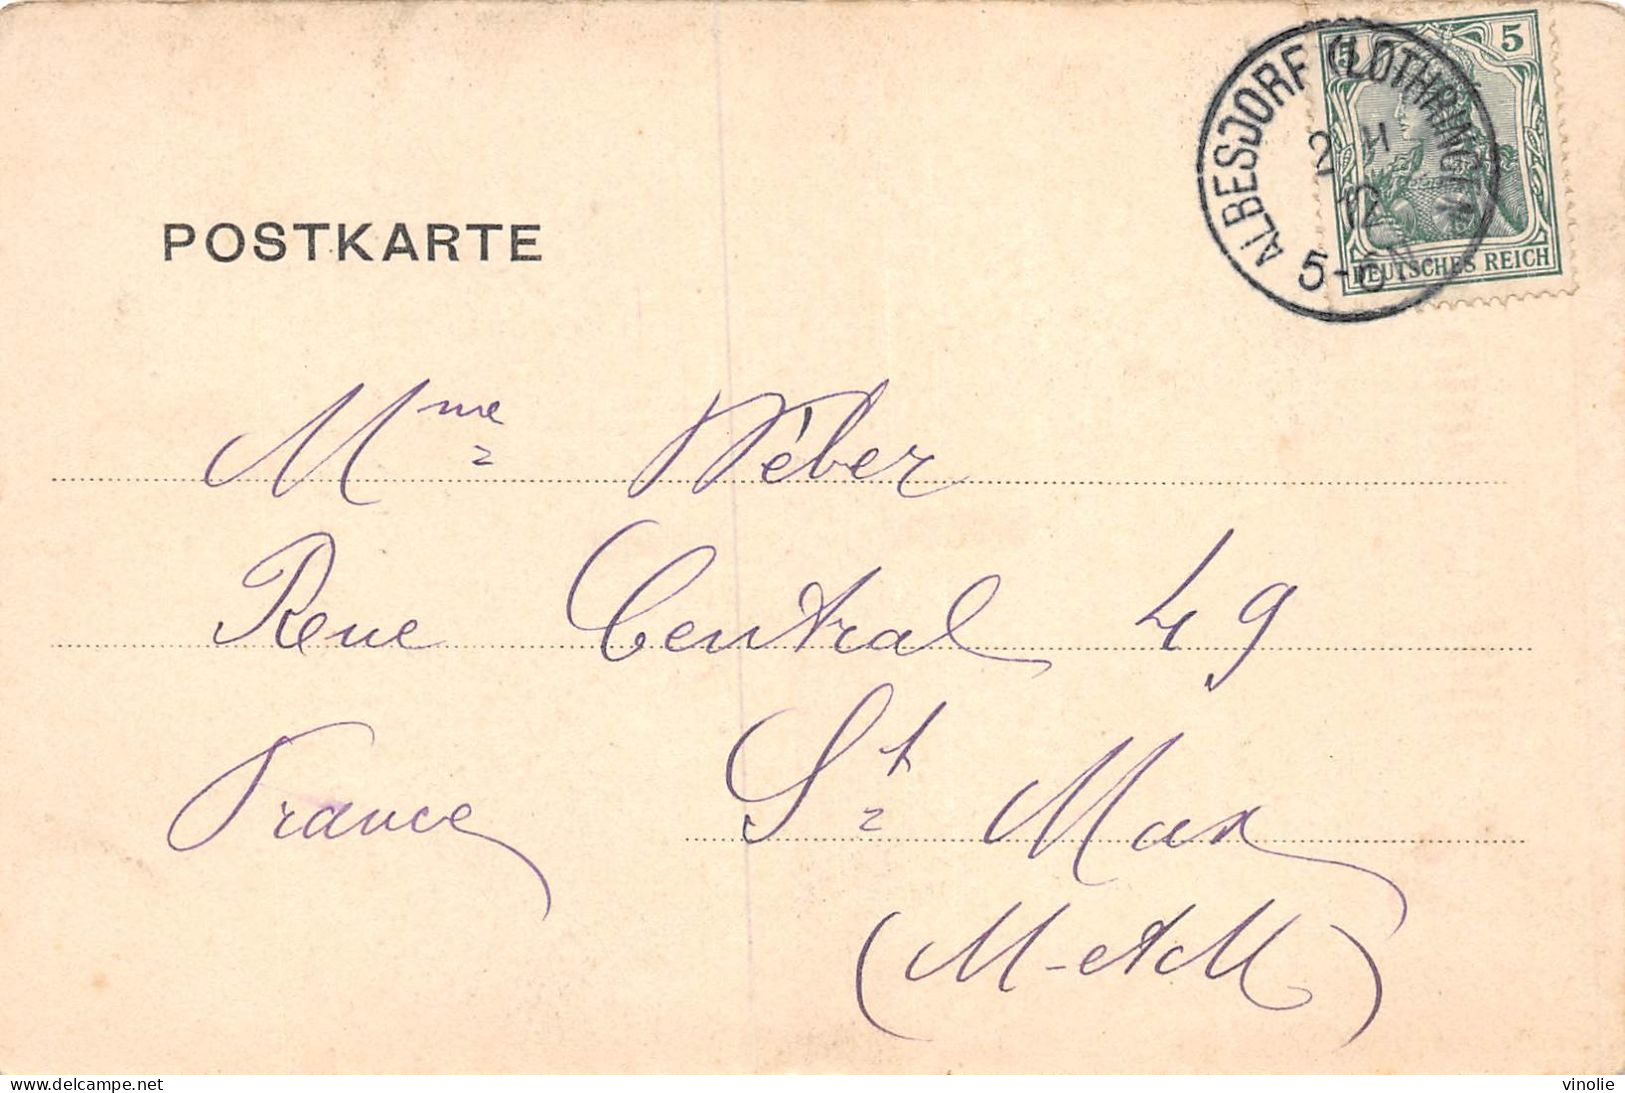 5 5
ALBESDORF (LOTHRINGEN)
5-6
DEUTSCHES REICH
POSTKARTE
Mme Wèber
Rue Central 49
France St Max
(M-et-M)
www.delcampe.net
vinolie